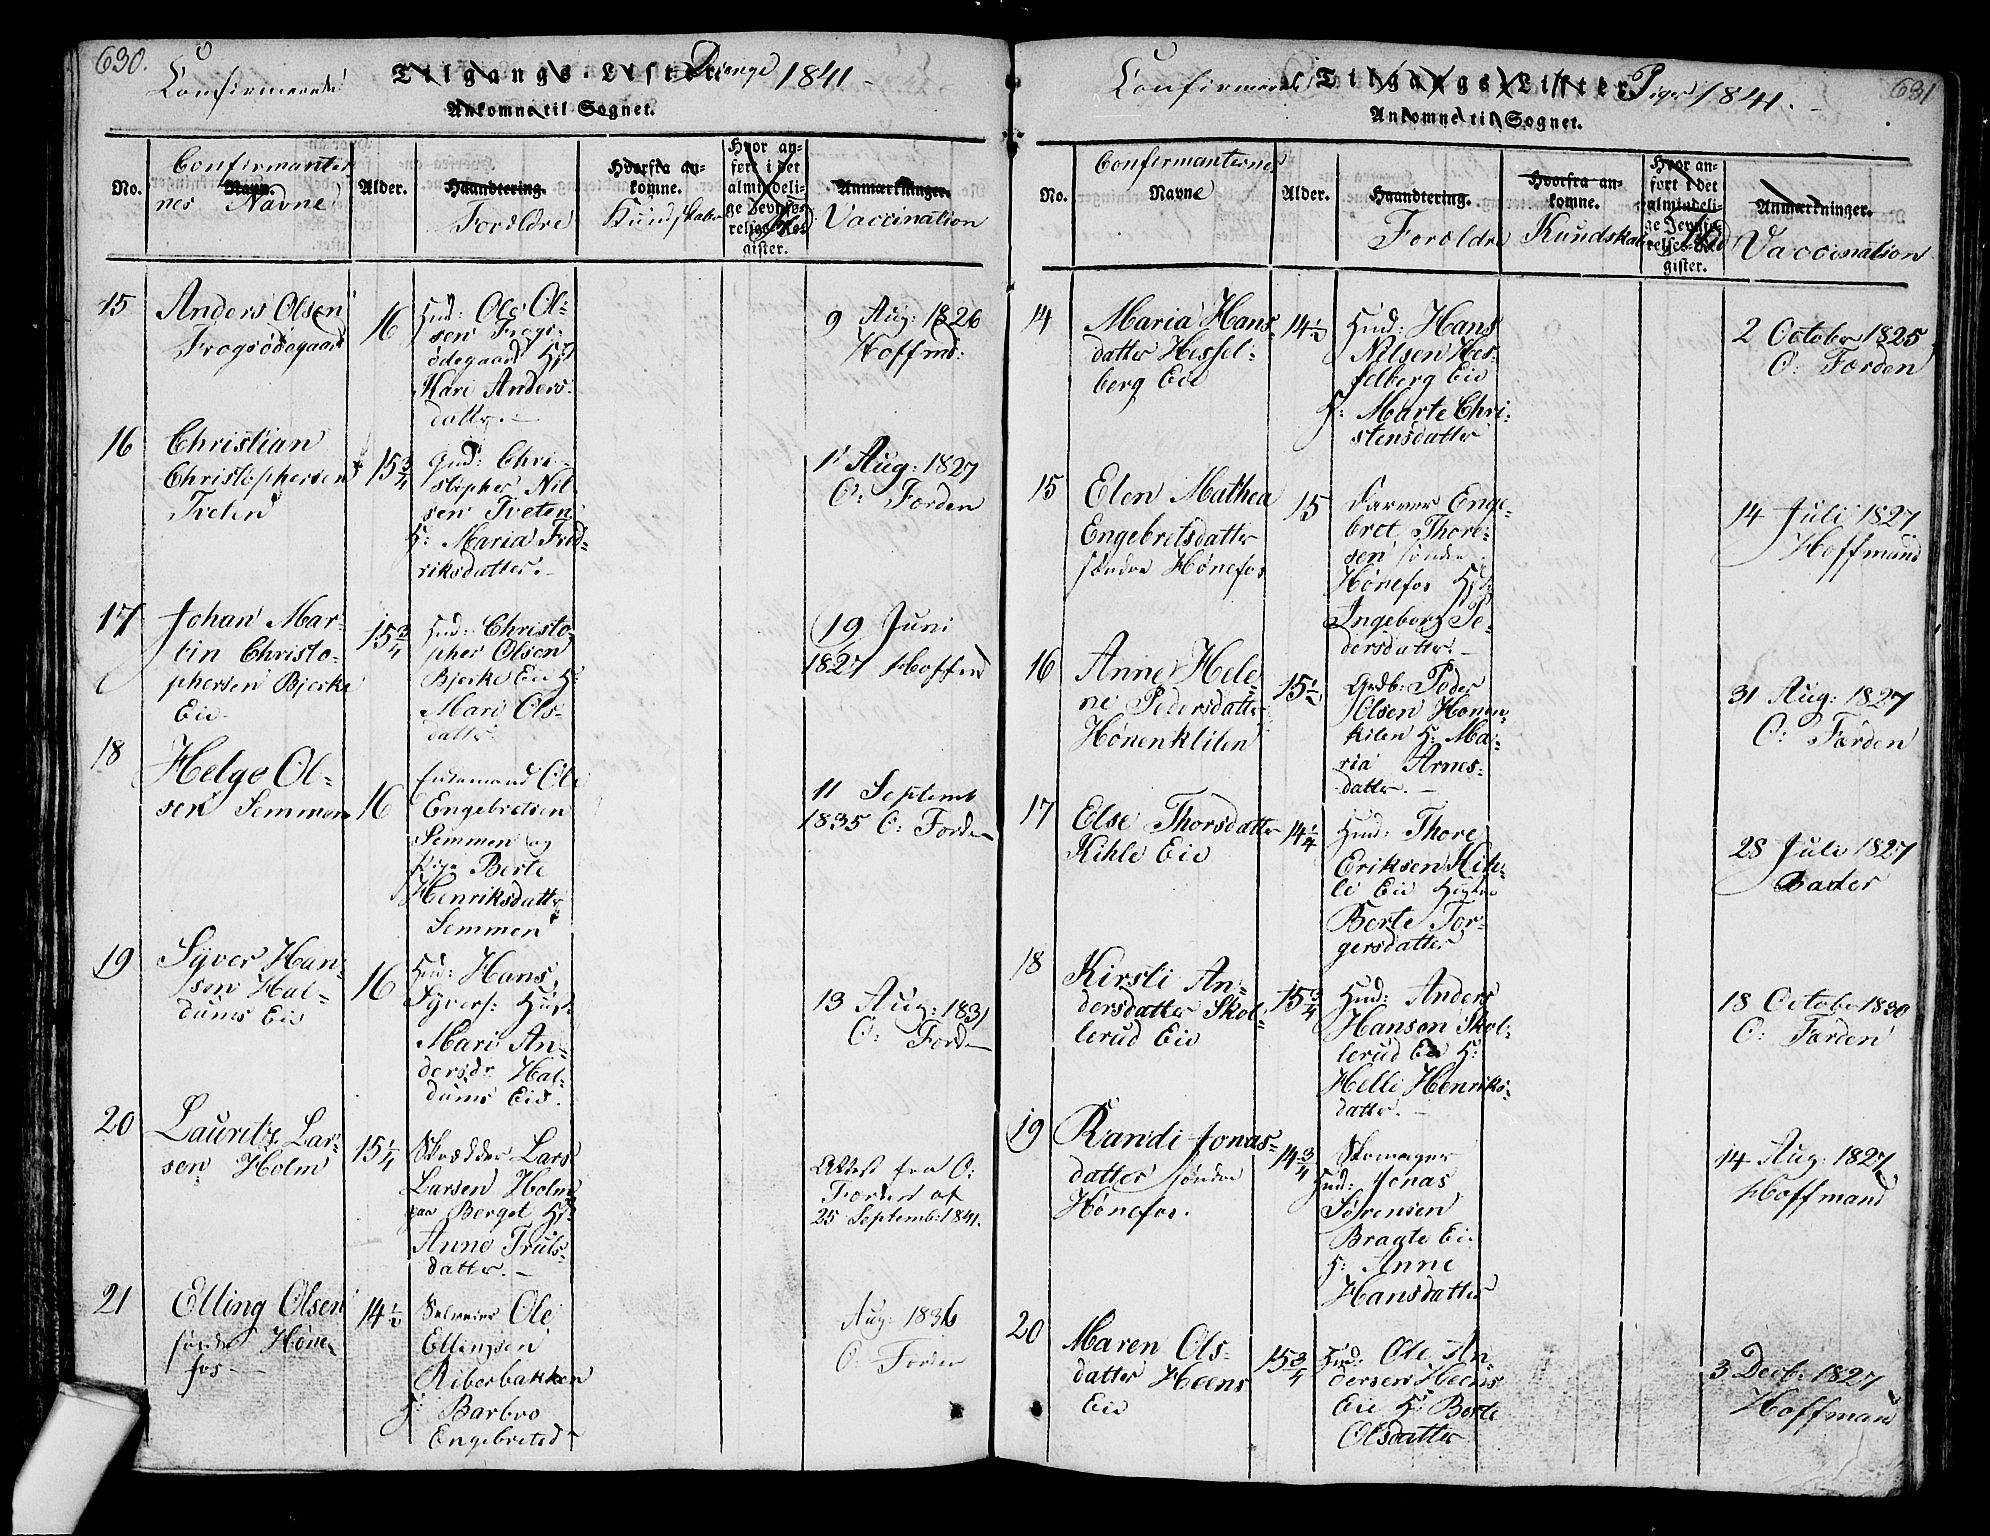 630.
Confirmerede Tilgangs-Lister. Drenge 1841
Ankomne til Sognet.
No.
Confirmanter
Navn.
nes Navne
Alder.
Haandtering.
Forældre
Hvorfra an-
komne.
Kundskaber
Hvor an-
ført i det
almindeli-
ge Jevnfø-
relses-Re-
gister.
Anmærkninger.
Vaccination
15
Anders Olsen
Frogsødegaard
16
Hmd: Ole Ol-
sen Frogs-
ödegaard H:
Kari Anders-
datter.
9 Aug: 1826
Hoffmd:
16
Christian
Christophersen
Tveten
15 3/4
Gmd: Chri-
stopher Nil-
sen Tveten
H: Maria Fred-
riksdatter.
1 Aug: 1827
O: Forden
17
Johan Mar-
tin Christo-
phersen Bjerke
Eie
15 3/4
Hmd: Christo-
pher Olsen
Bjerke Eie H:
Mari Ols-
datter
19 Juni
1827 Hoffmd
18
Helge Ol-
sen Semmen
16
Enkemand Ole
Engebretsen
Semmen og
Pige Berte
Henriksdatter
Semmen
11 Septemb
1835 O: Forden
19
Syver Han-
sen Hal-
dums Eie
16
Hmd: Hans
Syvers: Hust:
Mari An-
dersdr Hal-
dums Eie.
13 Aug: 1831
O: Forden
20
Lauritz Lar-
sen Holm
15 1/4
Skrædder Lars
Larsen Holm
paa Berget H:
Anne Truls-
datter.
Attest fra O:
Forden af
25 Septemb: 1841.
21
Elling Olsen
söndre Höne-
fos
14 1/2
Selveier Ole
Ellingsen
Riberbakken
H: Barbro
Engebretsd
Aug: 1836
O: Forden
631
Confirmerede Tilgangs-Lister. Piger 1841.
Ankomne til Sognet.
No.
Confirmanternes
Navne
Alder.
Haandtering.
Forældre
Hvorfra an-
komne.
Kundskab
Hvor an-
ført i det
almindeli-
ge Jevnfø-
relses-Re-
gister.
Anmærkninger.
Vaccination
14
Maria Hans
datter Hessel-
berg Eie
14 1/2
Hmd: Hans
Nilsen Hes-
selberg Eie
H: Marte Chri-
stensdatter
2 October 1825
O: Forden
15
Elen Mathea
Engebretsdatter
söndre Hönefos
15
Farver Enge-
bret Thore-
sen söndre
Hönefos H:
Ingeborg Pe-
dersdatter.
14 Juli 1827
Hoffmand
16
Anne Hele-
ne Pedersdatter
Hönenkilen
15 1/2
Grdb: Peder
Olsen Honen-
kilen H: Ma-
ria Arnes-
datter.
31 Aug: 1827
O: Forden
17
Else Thorsdatter
Kihle Eie
14 1/4
Hmd: Thore
Eriksen Kih-
le Eie Hustru
Berte Tor-
gersdatter
28 Juli 1827
Bader
18
Kirsti An-
dersdatter Skol-
lerud Eie
15 3/4
Hmd: Anders
Hansen Skol-
lerud Eie H:
Helli Henriks-
datter.
18 October 1830
O: Forden
19
Randi Jonas-
datter söndre
Hönefos.
14 3/4
Skomager
Hmd: Jonas
Sörensen
Bragte Eie
H: Anne
Hansdatter
14 Aug: 1827
Hoffmand
20
Maren Ols-
datter Heens
Eie
15 3/4
Hmd: Ole An-
dersen Heens
Eie H: Berte
Olsdatter
3 Decb: 1827
Hoffman